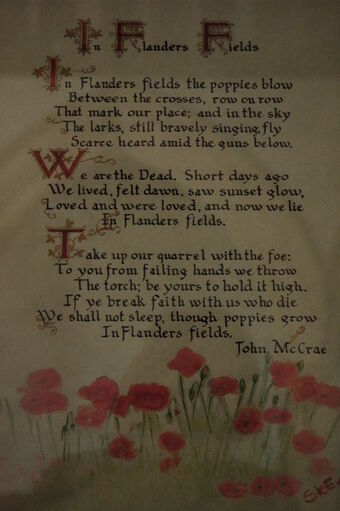 In Flanders Fields
In Flanders fields the poppies blow
Between the crosses, row on row
That mark our place; and in the sky
The larks, still bravely singing, fly
Scarce heard amid the guns below.
We are the Dead. Short days ago
We lived, felt dawn, saw sunset glow,
Loved and were loved, and now we lie
In Flanders fields.
Take up our quarrel with the foe:
To you from failing hands we throw
The torch; be yours to hold it high.
If ye break faith with us who die
We shall not sleep, though poppies grow
In Flanders fields.
John McCrae
SKE